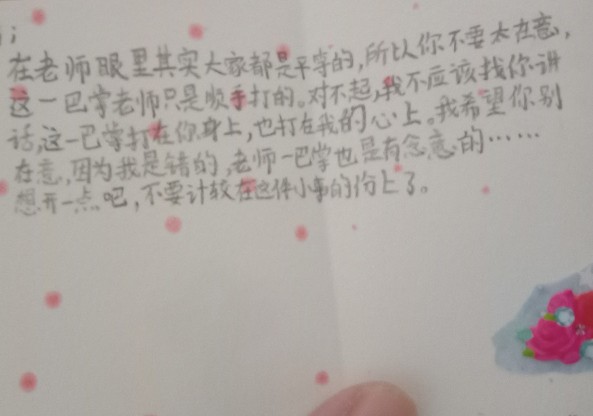 ;
在老师眼里其实大家都是平等的,所以你不要太在意,
这一巴掌老师只是顺手打的。对不起,我不应该找你讲
话,这一巴掌打在你身上,也打在我的心上。我希望你别
在意,因为我是错的,老师一巴掌也是有念意的……
想开一点吧,不要计较在这件小事的份上了。